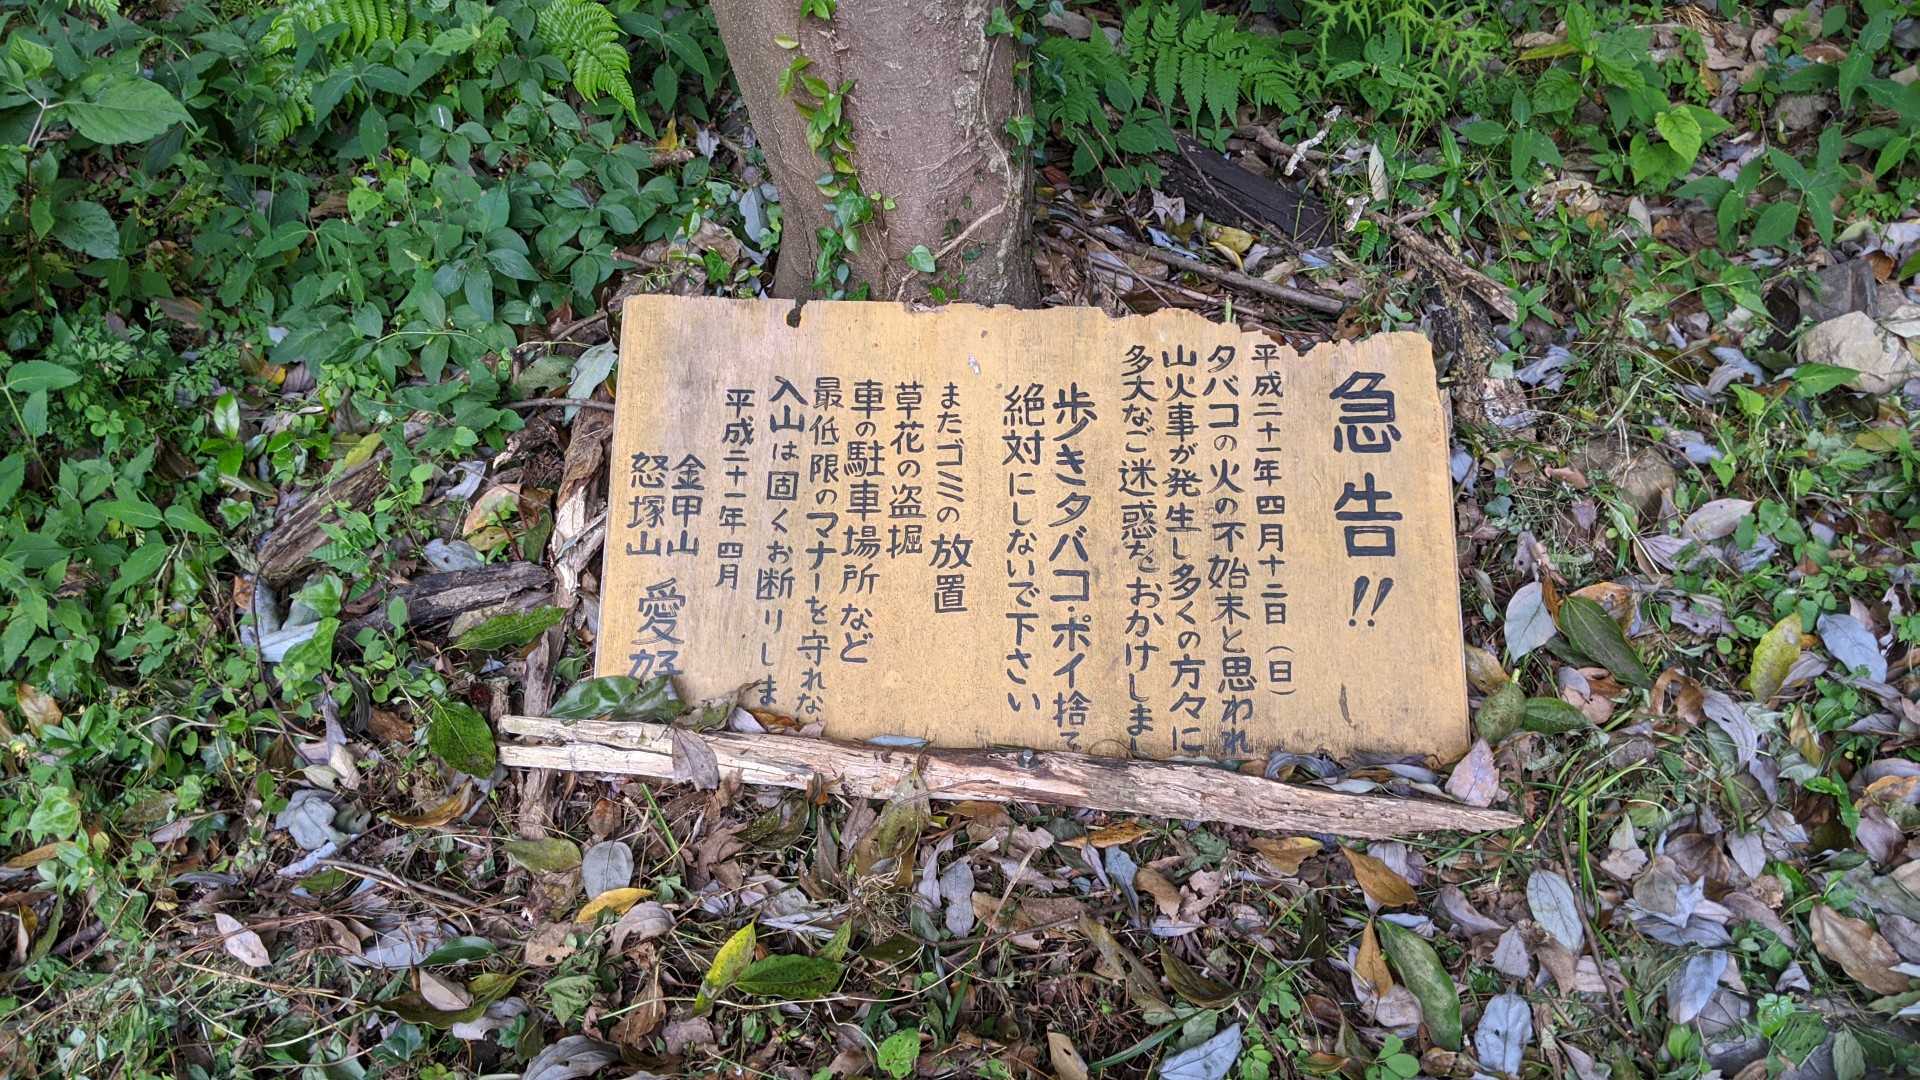 急告!!
平成二十一年四月十二日(日)
タバコの火の不始末と思われ
山火事が発生し多くの方々に
多大なご迷惑をおかけしまし
歩きタバコ・ポイ捨て
絶対にしないで下さい
またゴミの放置
草花の盗掘
車の駐車場所など
最低限のマナーを守れな
入山は固くお断りしま
平成二十一年四月
金甲山
怒塚山 愛好